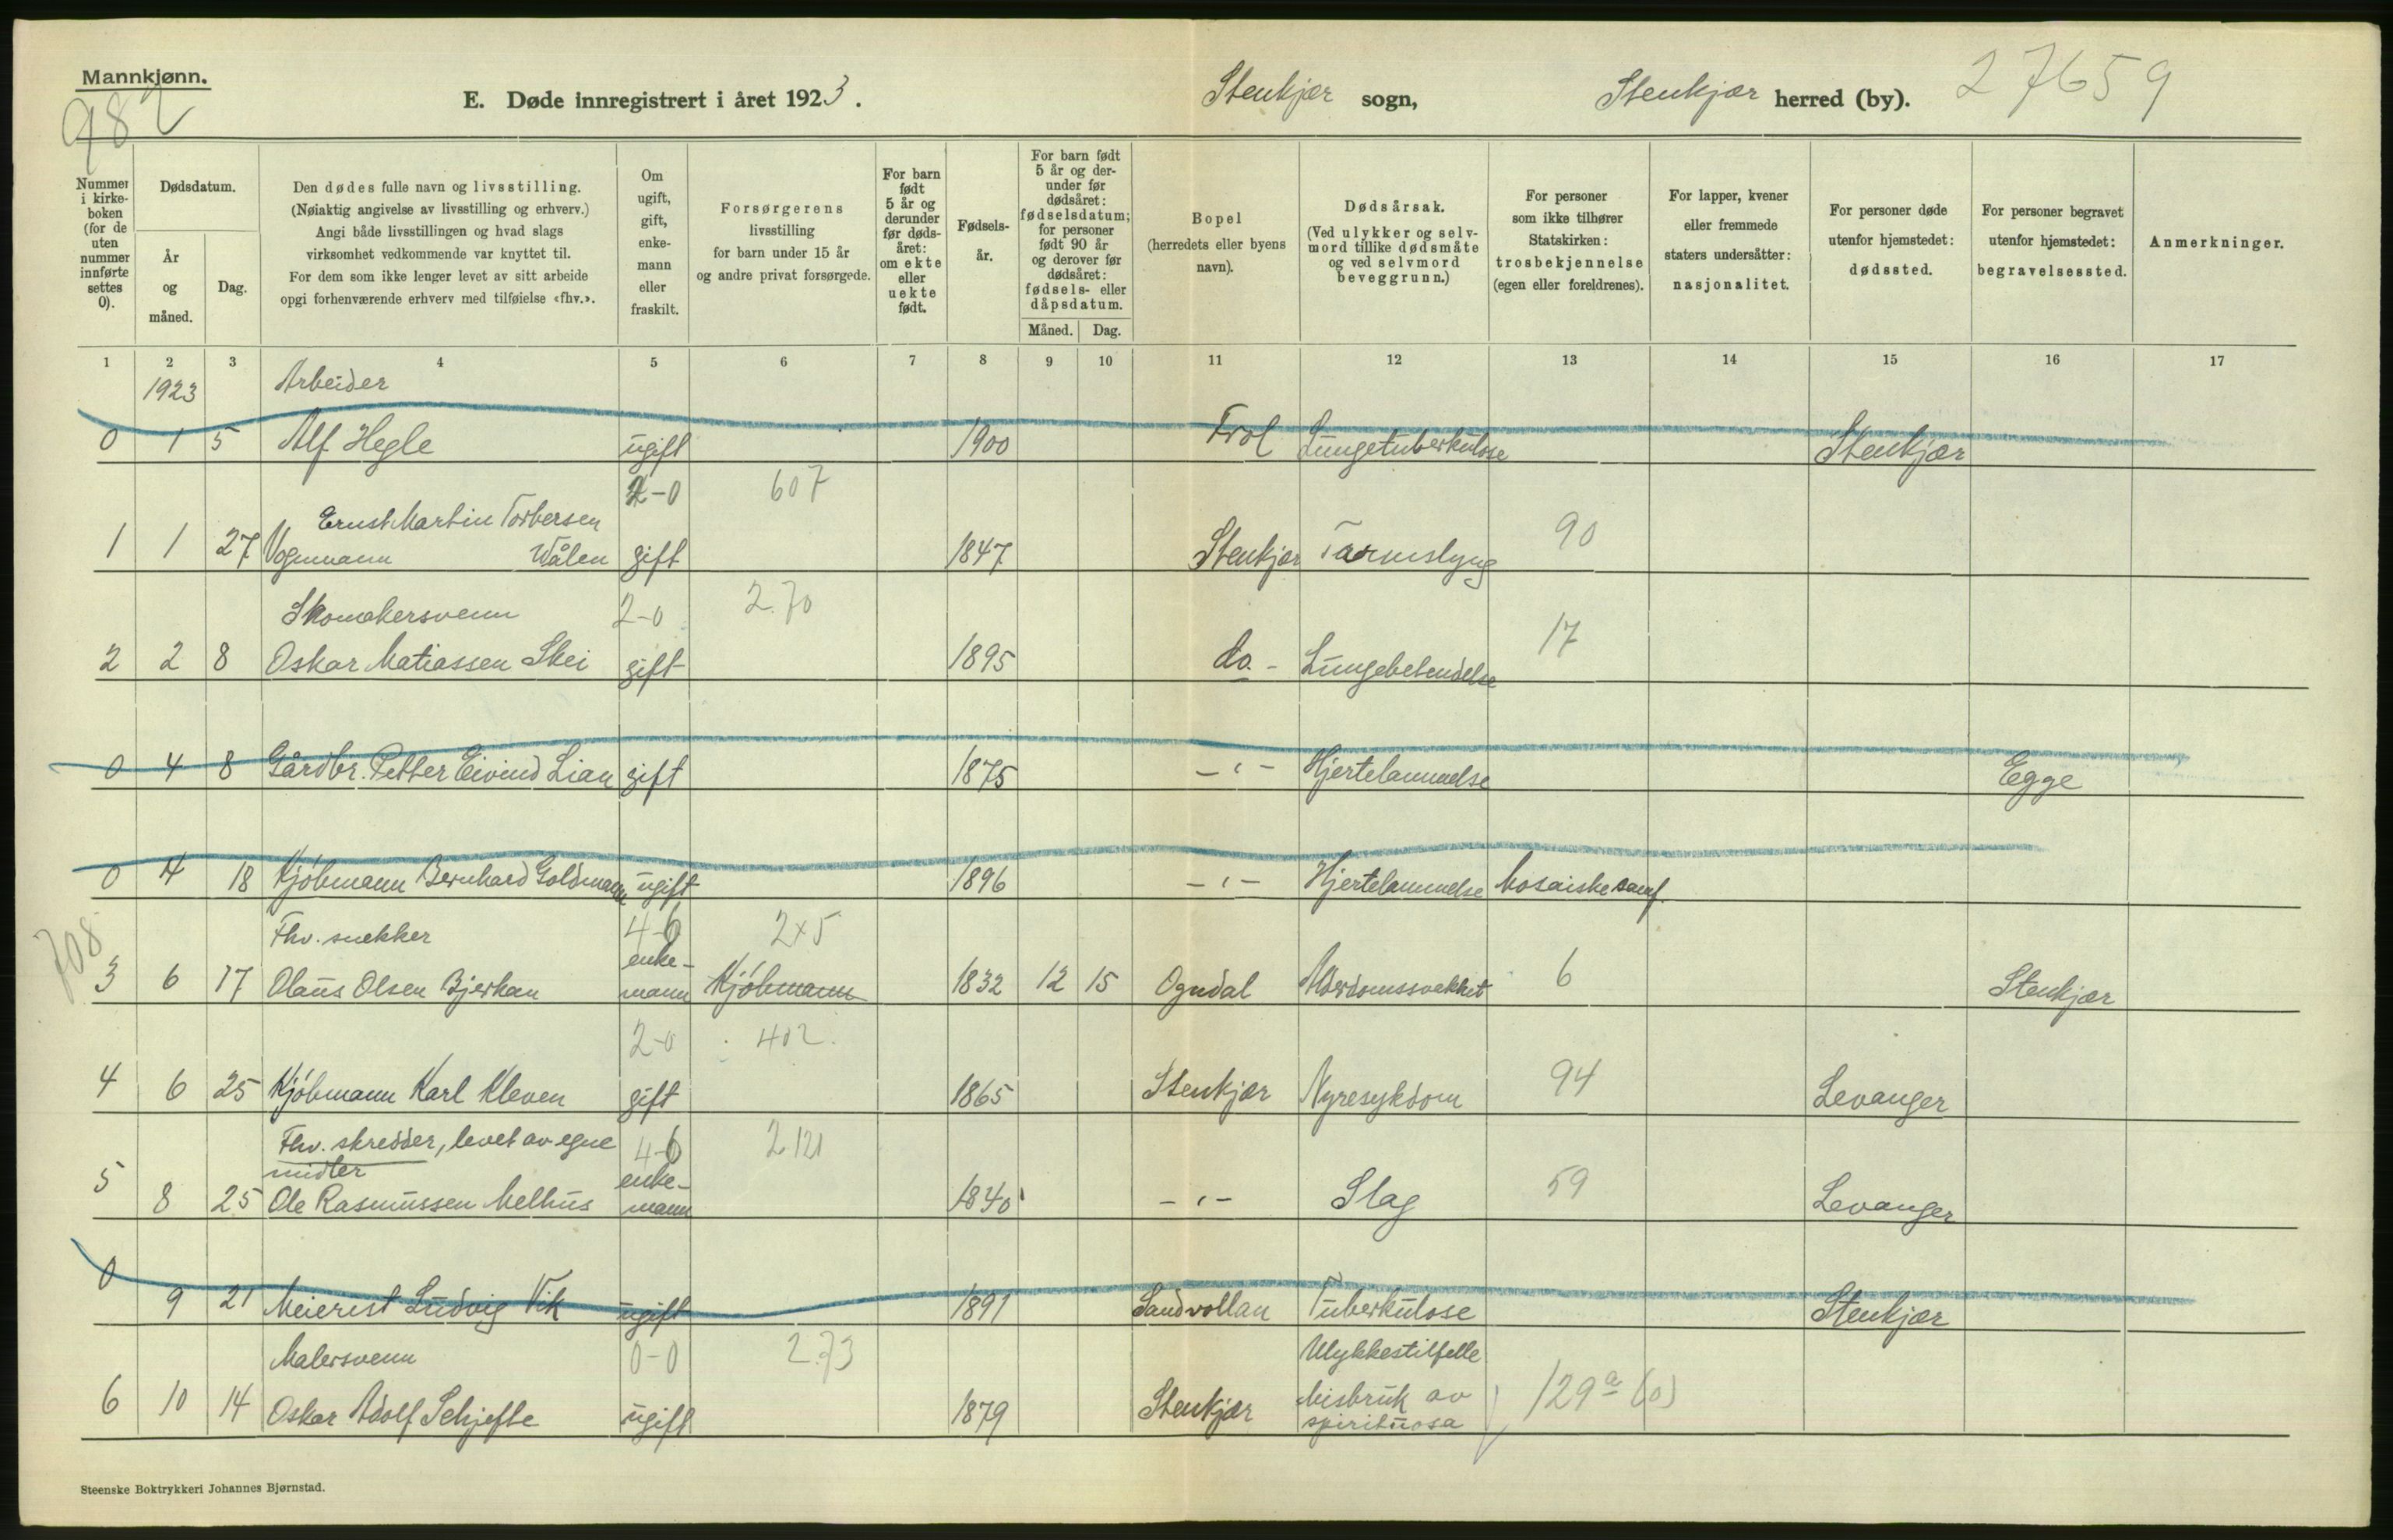 Mannkjønn.
982
E. Døde innregistrert i året 1923.
Stenkjær sogn,
Stenkjær herred (by).
27659
Nummer i kirkeboken (for de uten nummer innførte settes 0).
Dødsdatum.
År og måned.
Dag.
Den dødes fulle navn og livsstilling.
(Nøiaktig angivelse av livsstilling og erhverv.)
Angi både livsstillingen og hvad slags
virksomhet vedkommende var knyttet til.
For dem som ikke lenger levet av sitt arbeide
opgi forhenværende erhverv med tilføielse «fhv.».
Om ugift, gift, enkemann eller fraskilt.
Forsørgerens
livsstilling
for barn under 15 år
og andre privat forsørgede.
For barn født 5 år og derunder før dødsåret: om ekte eller uekte født.
Fødselsår.
For barn født 5 år og derunder før dødsåret: fødselsdatum; for personer født 90 år og derover før dødsåret: fødsels- eller dåpsdatum.
Måned. Dag.
Bopel
(herredets eller byens
navn).
Dødsårsak.
(Ved ulykker og selvmord tillike dødsmåte og ved selvmord beveggrunn.)
For personer
som ikke tilhører
Statskirken:
trosbekjennelse
(egen eller foreldrenes).
For lapper, kvener
eller fremmede
staters undersåtter:
nasjonalitet.
For personer døde
utenfor hjemstedet:
dødssted.
For personer begravet
utenfor hjemstedet:
begravelsessted.
Anmerkninger.
1 2 3 4 5 6 7 8 9 10 11 12 13 14 15 16 17
1923 Arbeider
0 1 5 Alf Hegle ugift 1900 Frol Lungetuberkulose Stenkjær
2-0 607
Ernst Martin Torbersen
1 1 27 Vognmann Wålen gift 1847 Stenkjær Tarmslyng 90
Skomakersvenn 2-0 2.70
2 2 8 Oskar Matiassen Skei gift 1895 do. - Lungebetendelse 17
0 4 8 Gårdbr. Petter Eivind Lian gift 1875 - " - Hjertelammelse Egge
0 4 18 Kjøbmann Bernhard Goldmann ugift 1896 - " - Hjertelammelse Mosaiske samf.
708
Fhv. snekker 4-6 2x5
3 6 17 Olaus Olsen Bjerkan enkemann Kjøbmann 1832 12 15 Ogndal Alderdomssvekket 6 Stenkjær
2-0 402.
4 6 25 Kjøbmann Karl Kleven gift 1865 Stenkjær Nyresykdom 94 Levanger
Fhv. skredder, levet av egne 4-6 2121
midler
5 8 25 Ole Rasmussen Melhus enkemann 1840 - " - Slag 59 Levanger
0 9 21 Meierist Ludvig Vik ugift 1891 Sandvollan Tuberkulose Stenkjær
Malersvenn 0-0 2.73 Ulykkestilfelle
6 10 14 Oskar Adolf Schjefte ugift 1879 Stenkjær Misbruk av 129a (0)
spirituosa
Steenske Boktrykkeri Johannes Bjørnstad.